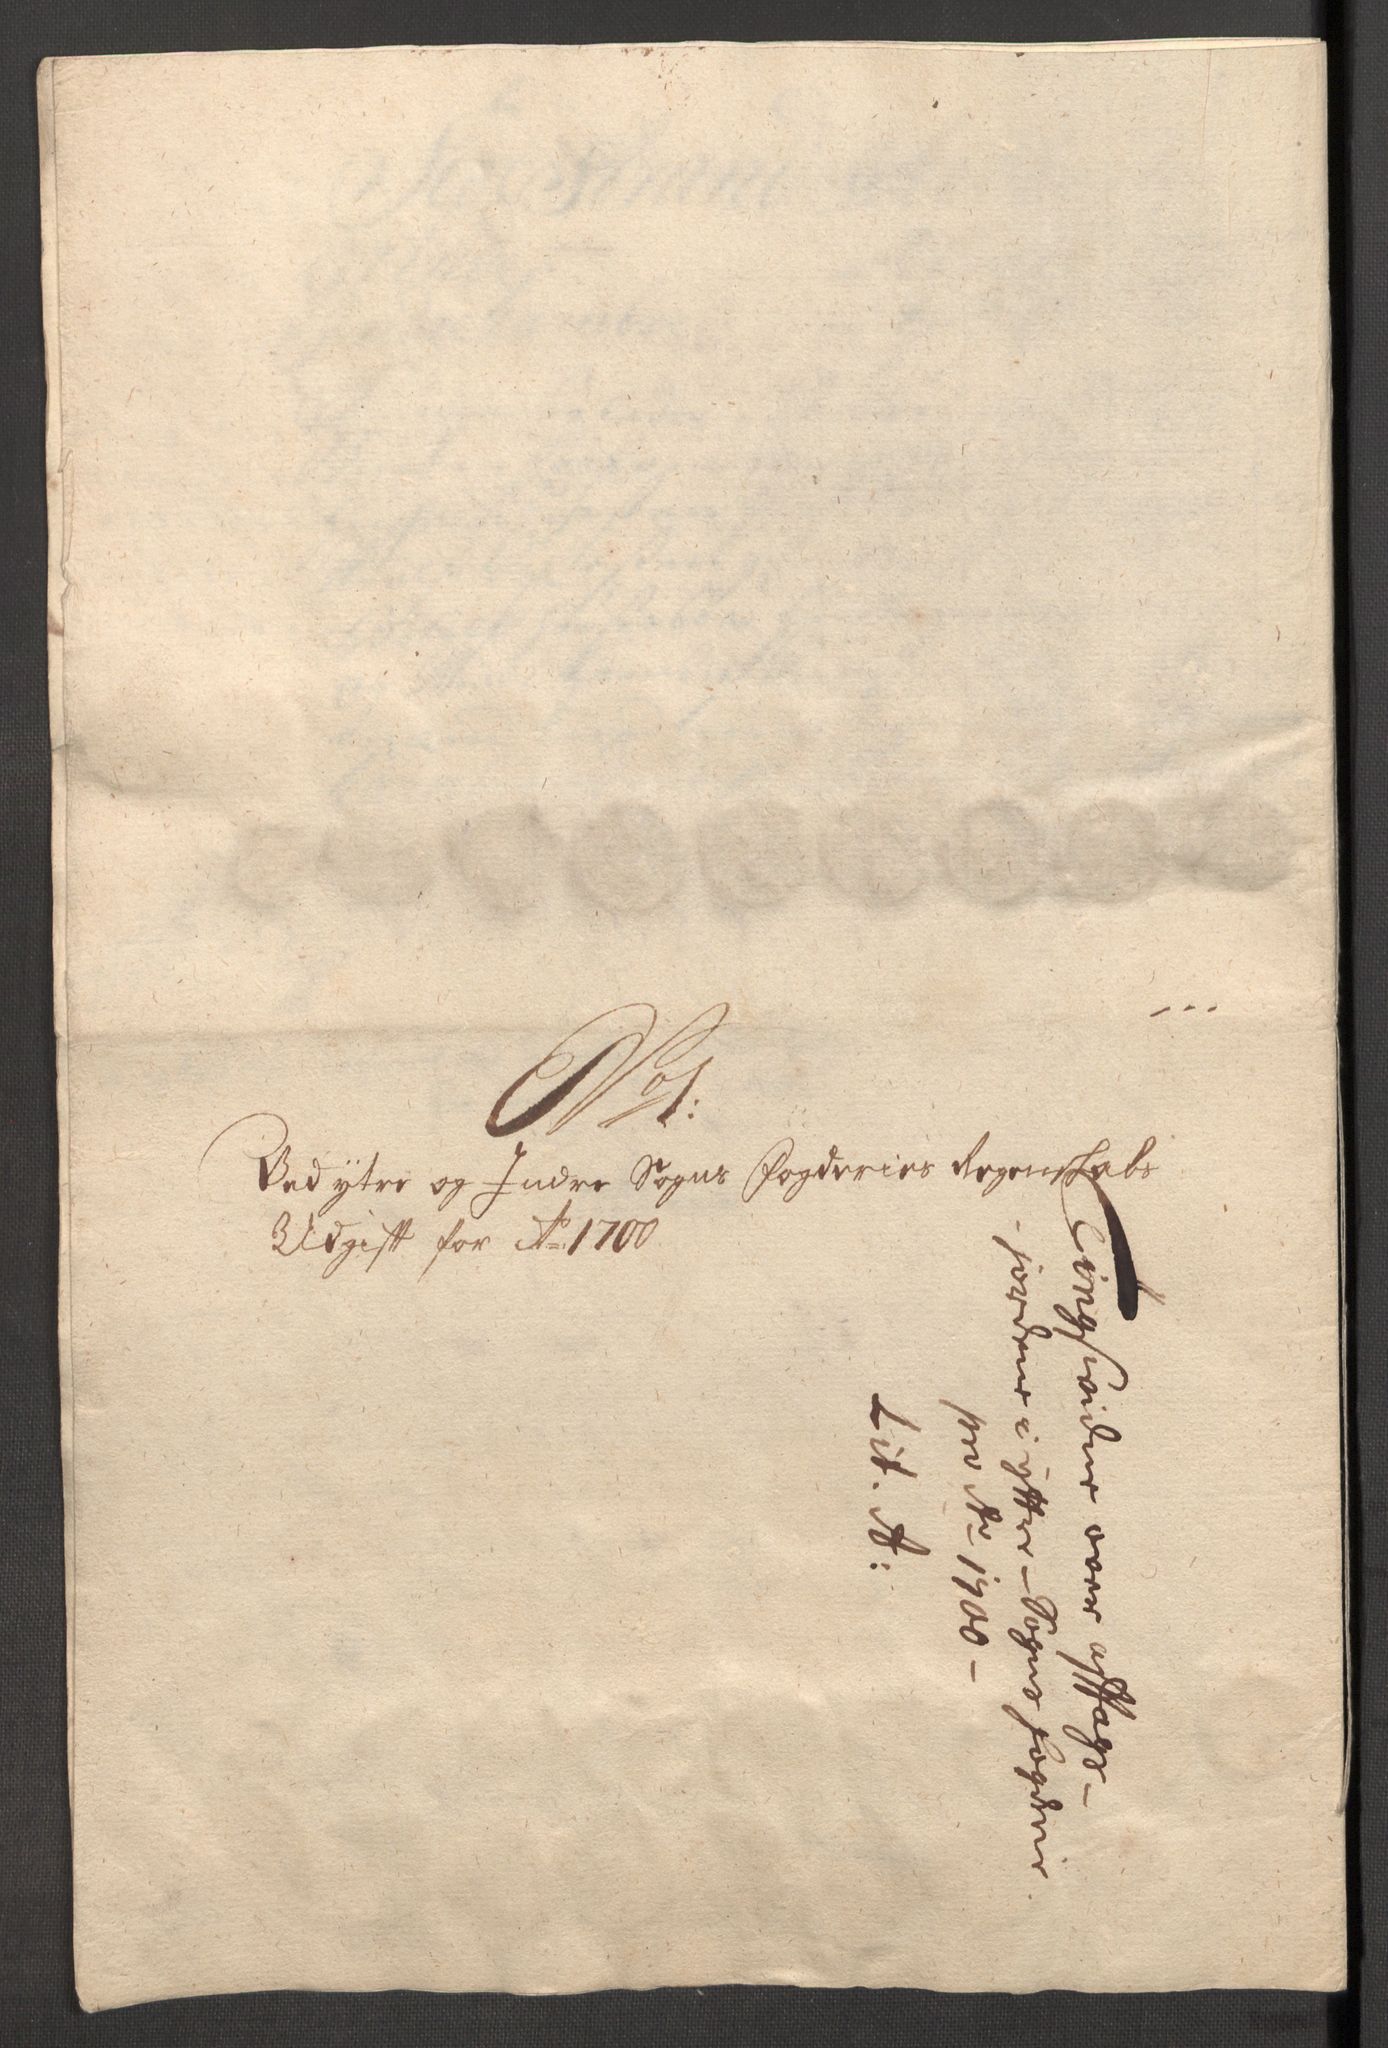 No 1:
Ved ytre og Indre Sogns fogderies Regenskabs
Udgift for Ao 1700
Tingsvidne over aftage-
jorderne i Yttre-Sogns fogderi
pro Ao 1700-
Lit. A: